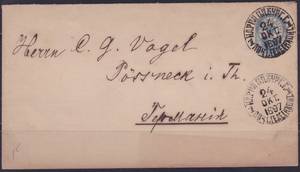 Herrn C. G. Vogel
Pössneck i. Th.
Германія
24
ОКТ
1897
24
ОКТ
1897